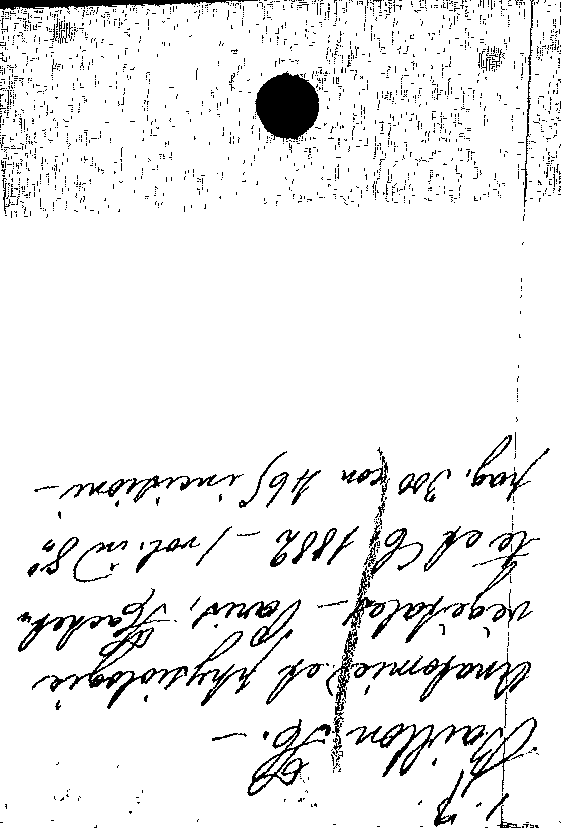 Baillon H. —
Anatomie et physiologie
végétales — Paris, Hachet-
te et C 1882 — 1 vol. in 8°
pag. 300 con 465 incisioni —